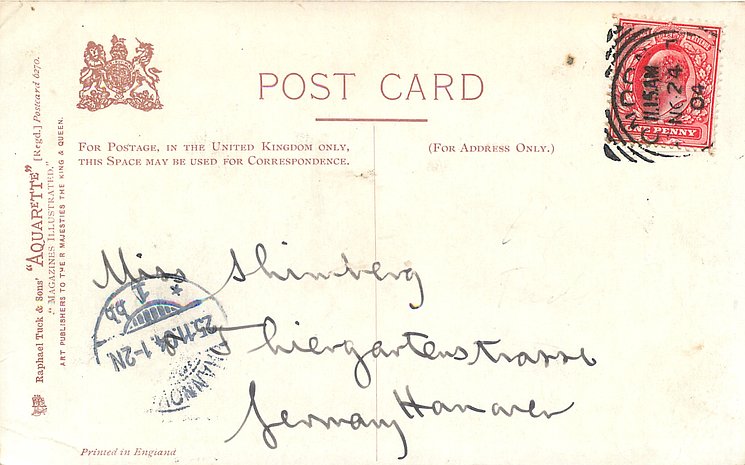 POST CARD
FOR POSTAGE, IN THE UNITED KINGDOM ONLY,
THIS SPACE MAY BE USED FOR CORRESPONDENCE.
(FOR ADDRESS ONLY.)
Raphael Tuck & Sons' "AQUARETTE" [Regd.] Postcard 6270.
"MAGAZINES ILLUSTRATED."
ART PUBLISHERS TO THEIR MAJESTIES THE KING & QUEEN.
11.15AM
24
04
ONE PENNY
Miss Shimberg
Thiergartenstrasse
Germany Hanover
1
bb
25.11.04.1-2N
HANNOV
Printed in England